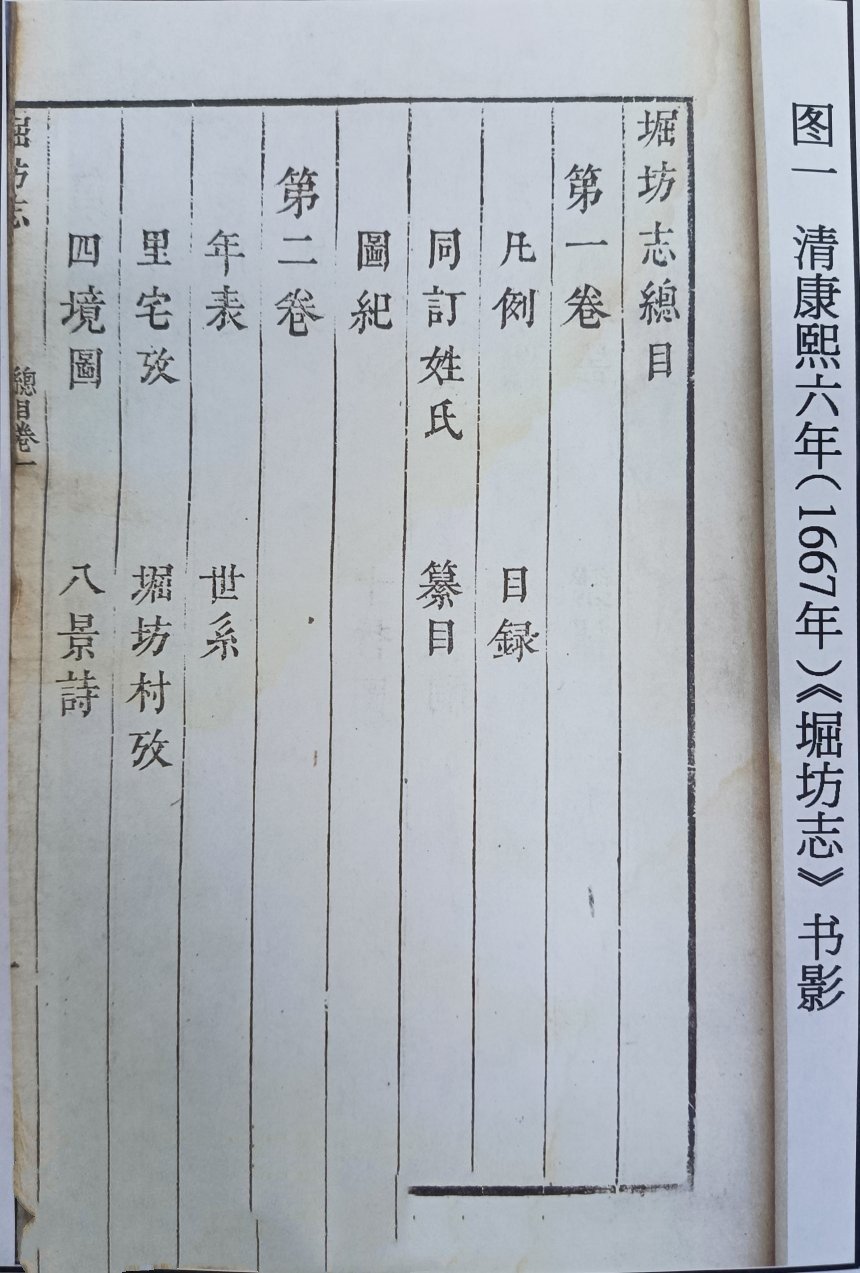 图一 清康熙六年(1667年)《堀坊志》书影
堀坊志總目
第一卷
凡例 目録
同訂姓氏 纂目
圖紀
第二卷
年表 世系
里宅攷 堀坊村攷
四境圖 八景詩
堀坊志 總目卷一